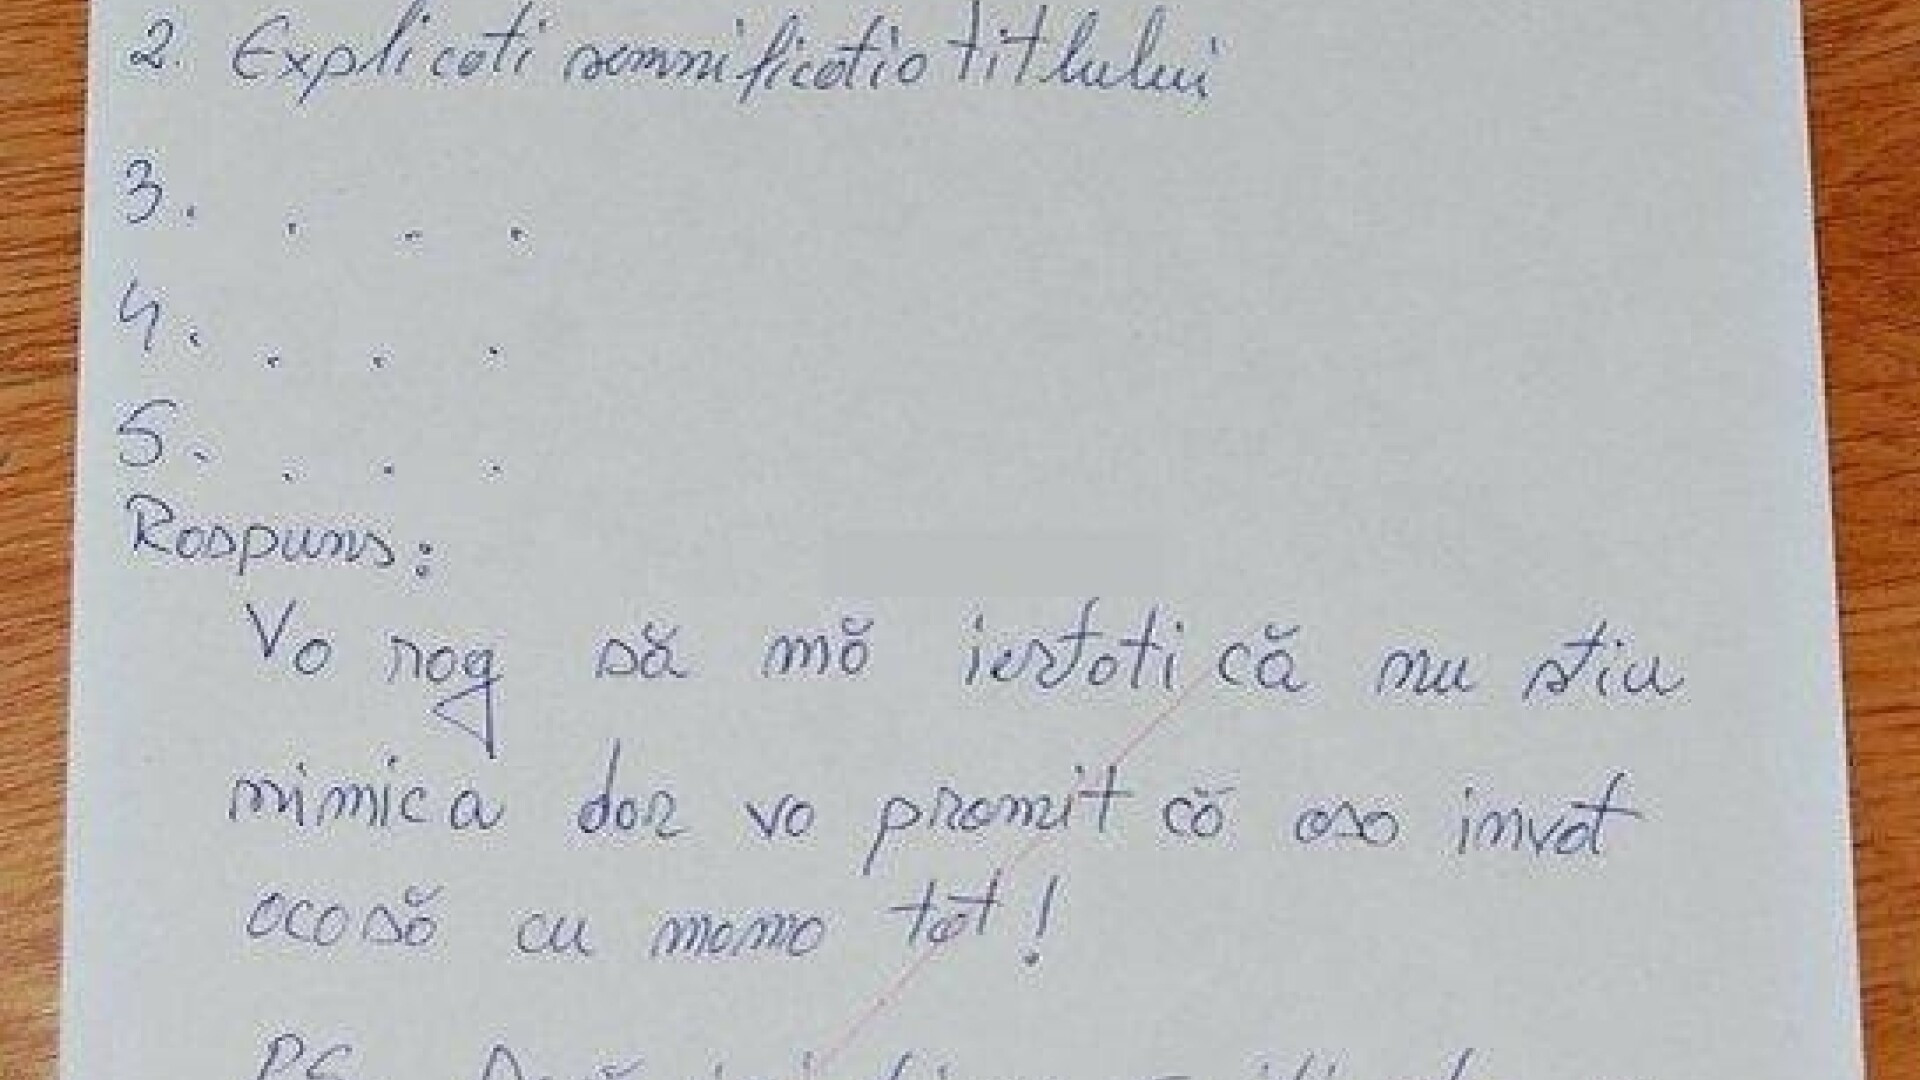 2. Explicati semnificatia titlului
3. . . .
4. . . .
5. . . .
Raspuns:
Va rog să mă iertati că nu stiu
nimica dar va promit că asa invat
acasă cu mama tot!
PS. Dacă